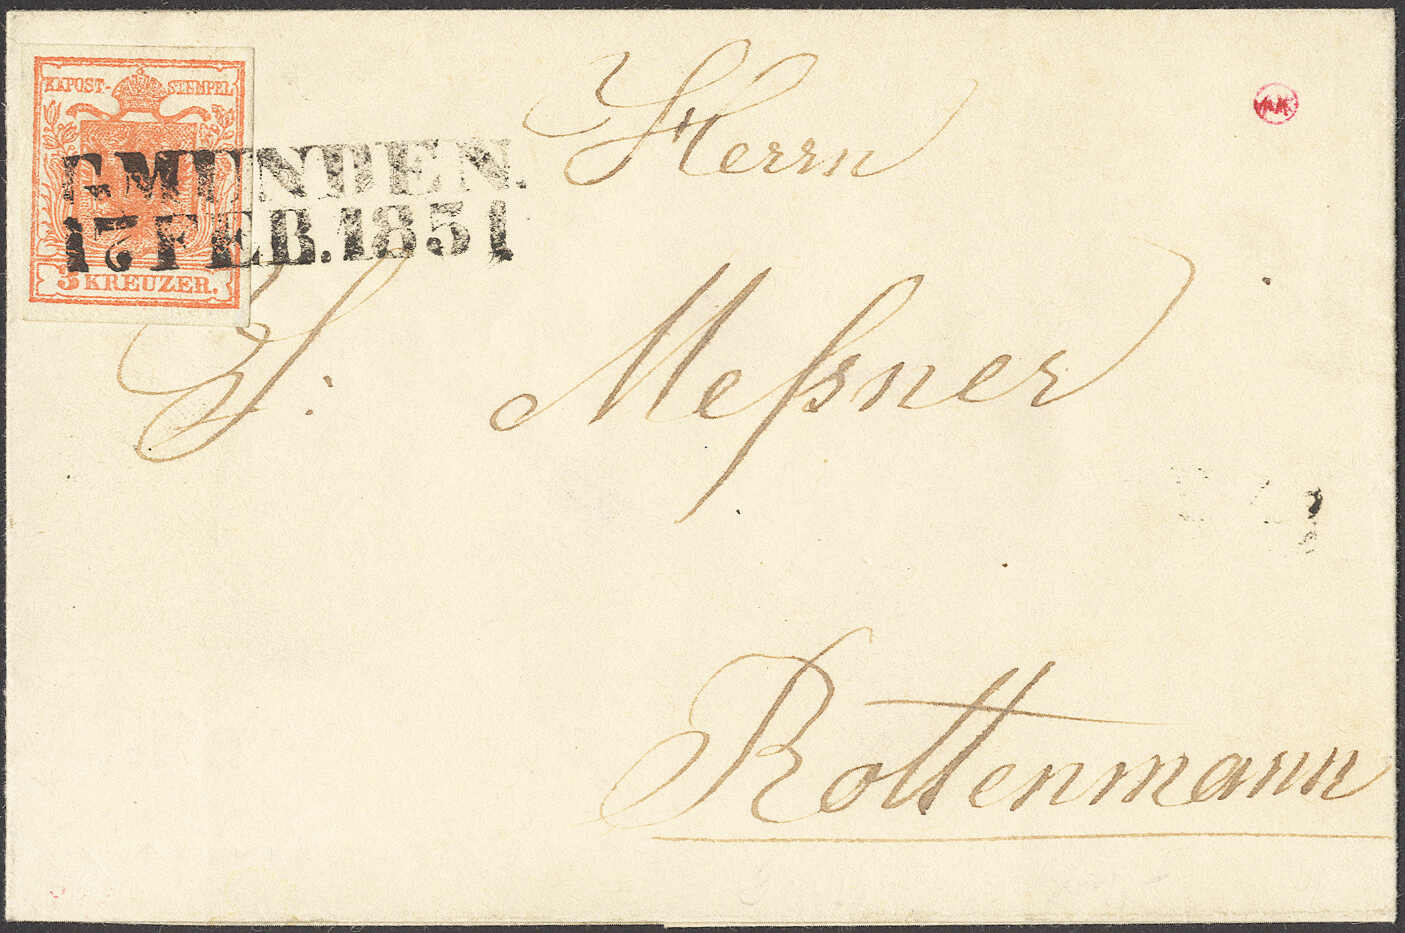 KKPOST-STEMPEL
GMUNDEN.
17 FEB. 1851
3 KREUZER.
Herrn
J: Meßner
Rottenmann